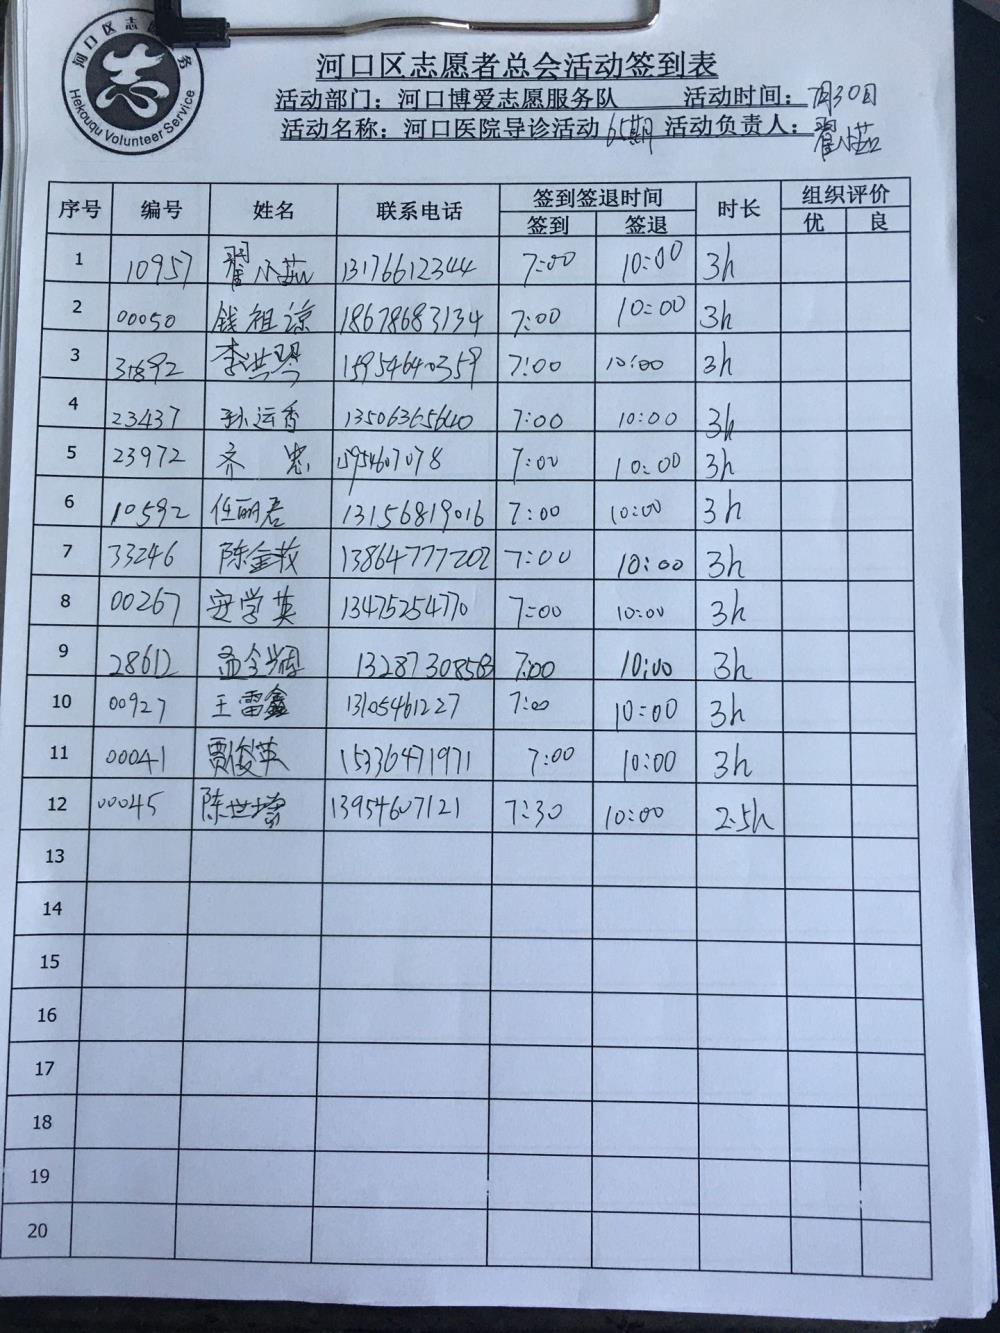 河口区志
务
志
Hekouqu Volunteer Service
河口区志愿者总会活动签到表
活动部门：河口博爱志愿服务队 活动时间：7月30日
活动名称：河口医院导诊活动65期 活动负责人：翟小茹
序号 编号 姓名 联系电话 签到签退时间 时长 组织评价
签到 签退 优 良
1 10957 翟小茹 13176612344 7:00 10:00 3h
2 00050 钱祖谅 18678683134 7:00 10:00 3h
3 31892 李洪琴 15954640359 7:00 10:00 3h
4 23437 孙运香 13506365640 7:00 10:00 3h
5 23972 齐忠 15954607078 7:00 10:00 3h
6 10592 任丽君 13156819016 7:00 10:00 3h
7 33246 陈金枝 13864777202 7:00 10:00 3h
8 00267 安学英 13475254770 7:00 10:00 3h
9 28612 孟全 13287308563 7:00 10:00 3h
10 00927 王雷鑫 13105461227 7:00 10:00 3h
11 00041 贾俊英 15336471971 7:00 10:00 3h
12 00045 陈世 13954607121 7:30 10:00 2.5h
13
14
15
16
17
18
19
20